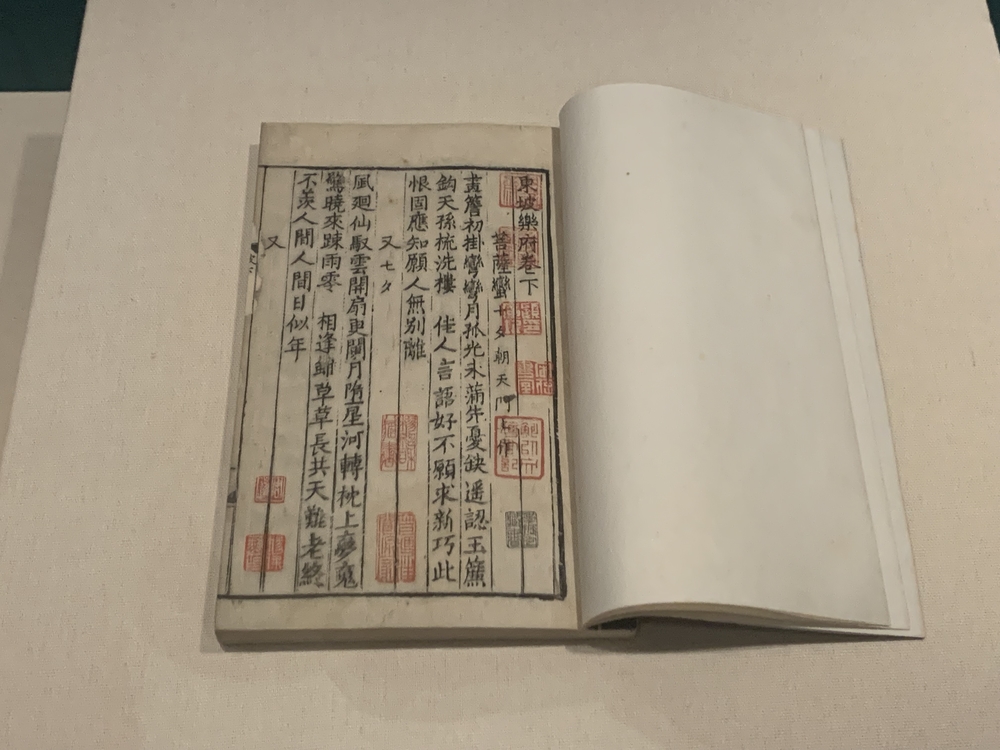 東坡樂府卷下
菩薩蠻 七夕朝天門上作
畫簷初掛彎彎月孤光未滿先憂缺遥認玉簾
鈎天孫梳洗樓 佳人言語好不願求新巧此
恨固應知願人無別離
又 七夕
風廻仙馭雲開扇更闌月墮星河轉枕上夢魂
驚曉來踈雨零 相逢雖草草長共天難老終
不羨人間人間日似年
又